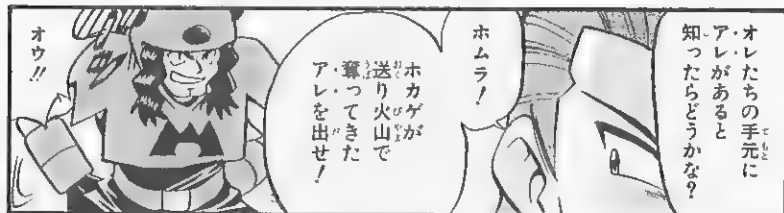 オレたちの手元に
アレがあると
知ったらどうかな？
ホムラ！
ホカゲが
送り火山で
奪ってきた
アレを出せ！
オウ!!